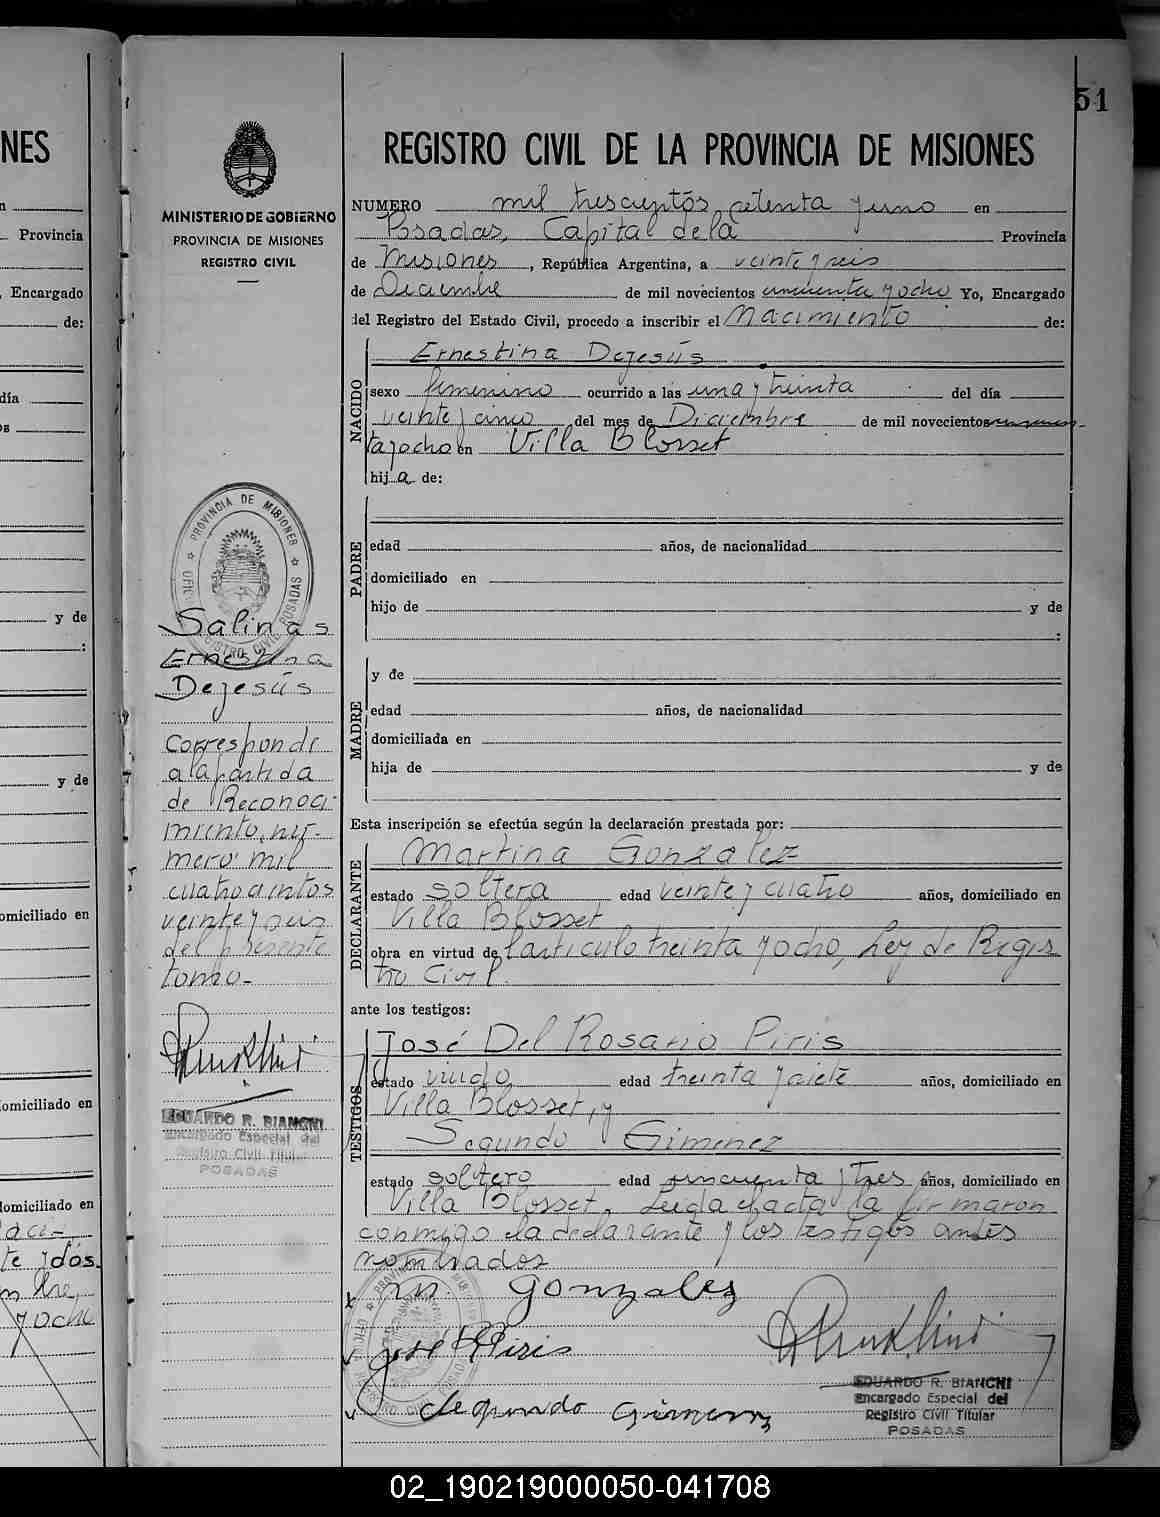 51
NES
MINISTERIO DE GOBIERNO
PROVINCIA DE MISIONES
REGISTRO CIVIL
REGISTRO CIVIL DE LA PROVINCIA DE MISIONES
NUMERO mil trescientos setenta y uno en
Posadas, Capital de la Provincia
de Misiones, República Argentina, a veinte y seis
de Diciembre de mil novecientos cincuenta y ocho Yo, Encargado
del Registro del Estado Civil, procedo a inscribir el Nacimiento de:
NACIDO
Ernestina Dejesús
sexo femenino ocurrido a las una y treinta del día
veinte y cinco del mes de Diciembre de mil novecientos cincuen-
ta y ocho en Villa Blosset
hija de:
PADRE
edad años, de nacionalidad
domiciliado en
hijo de y de
:
MADRE
y de
edad años, de nacionalidad
domiciliada en
hija de y de
Esta inscripción se efectúa según la declaración prestada por:
DECLARANTE
Martina Gonzalez
estado soltera edad veinte y cuatro años, domiciliado en
Villa Blosset
obra en virtud de l'artículo treinta y ocho, Ley de Regis
tro Civil.
ante los testigos:
TESTIGOS
José Del Rosario Piris
estado viudo edad treinta y siete años, domiciliado en
Villa Blosset, y
Segundo Gimenez
estado soltero edad cincuenta y tres años, domiciliado en
Villa Blosset. Leida el acta la firmaron
conmigo la declarante y los testigos antes
nombrados
M. Gonzalez
José R Piris
Segundo Gimenez
EDUARDO R. BIANCHI
Encargado Especial del
Registro Civil Titular
POSADAS
PROVINCIA DE MISIONES
Salinas
Ernestina
Dejesús
Corresponde
a la partida
de Reconoci-
miento, nú-
mero mil
cuatrocientos
veinte y seis
del presente
tomo.-
EDUARDO R. BIANCHI
Encargado Especial del
Registro Civil Titular
POSADAS
Provincia
, Encargado
de:
día
y de
:
y de
omiciliado en
omiciliado en
domiciliado en
naci-
te y dós
y ocho
02_190219000050-041708